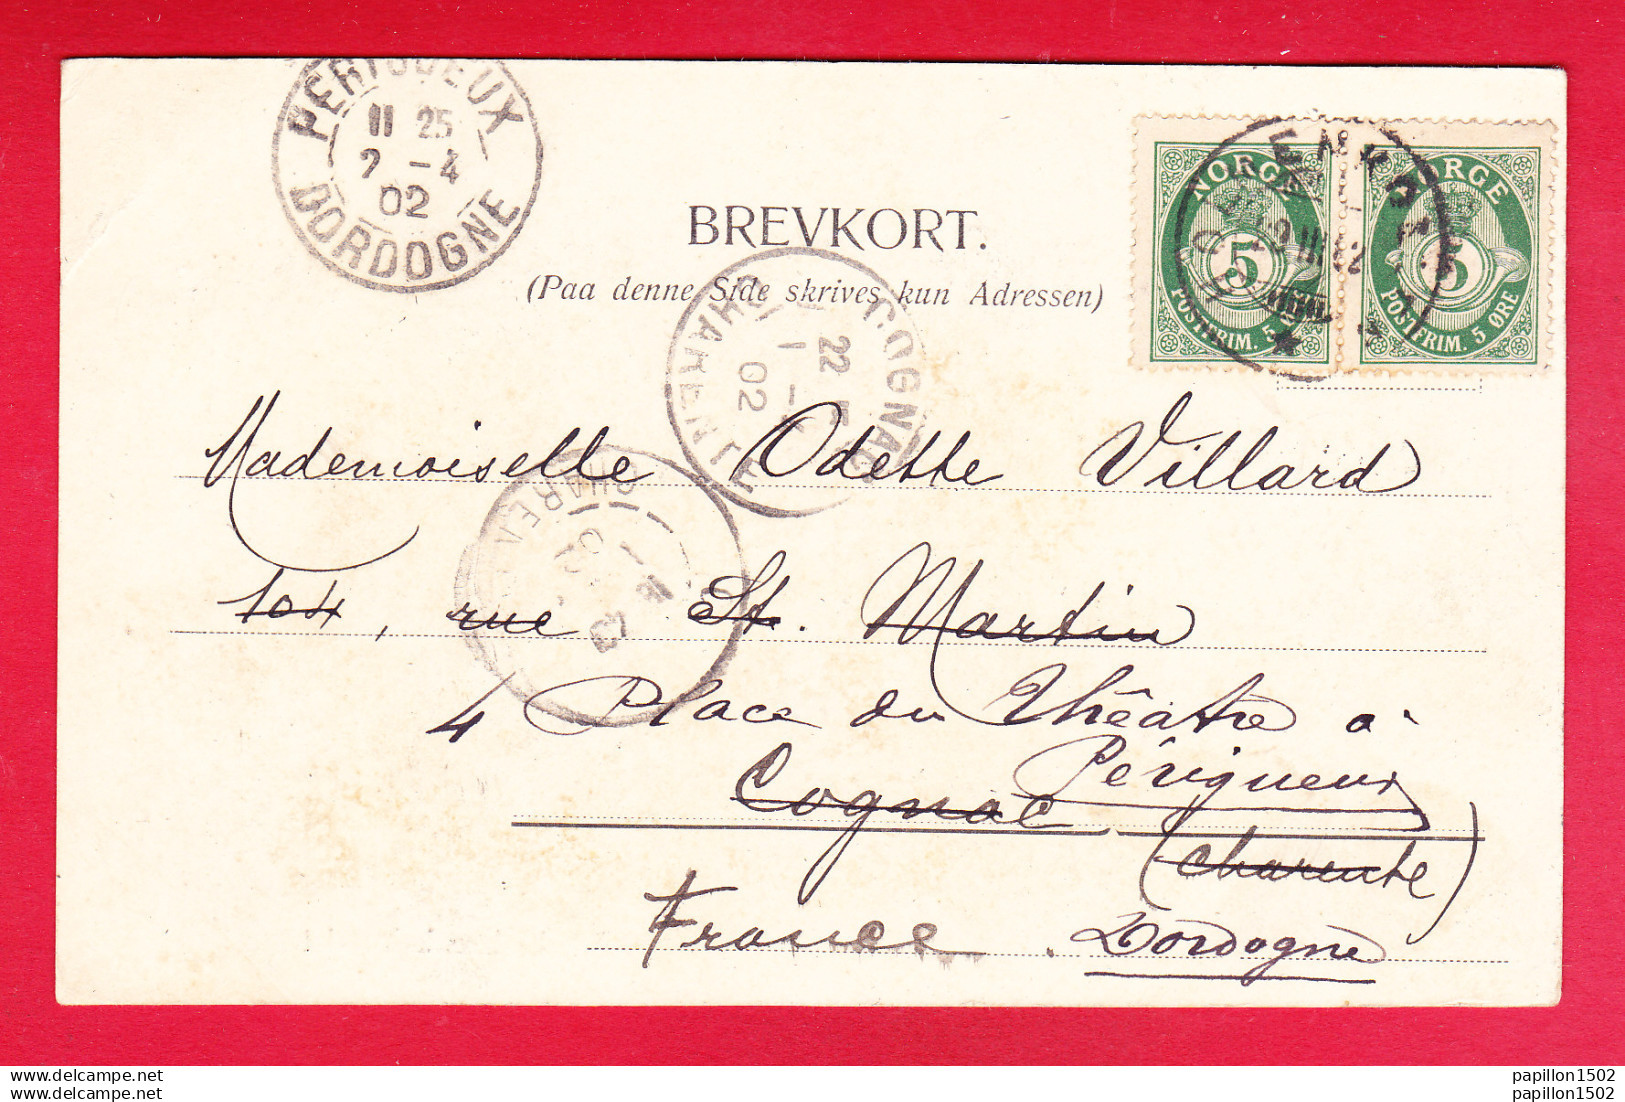 PERIGUEUX
11 25
2 -4
02
DORDOGNE
BREVKORT.
(Paa denne Side skrives kun Adressen)
NORGE
5
POSTFRIM. 5
NORGE
5
POSTFRIM. 5 ØRE
COGNAC
22
02
CHARENTE
Mademoiselle Odette Villard
104, rue St. Martin
4 Place du Théâtre à
Périgueux
Cognac
(Charente)
France. Dordogne
papillon1502
papillon1502
papillon1502
papillon1502